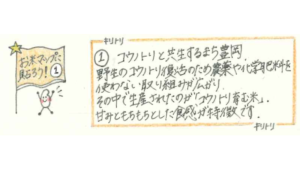 お米マップに
貼ろう！①
キリトリ
① コウノトリと共生するまち豊岡。
野生のコウノトリ復活のため農薬や化学肥料を
使わない取り組みが広がり、
その中で生産されたのが「コウノトリ育む米」。
甘みともちもちとした食感が特徴です。
キリトリ